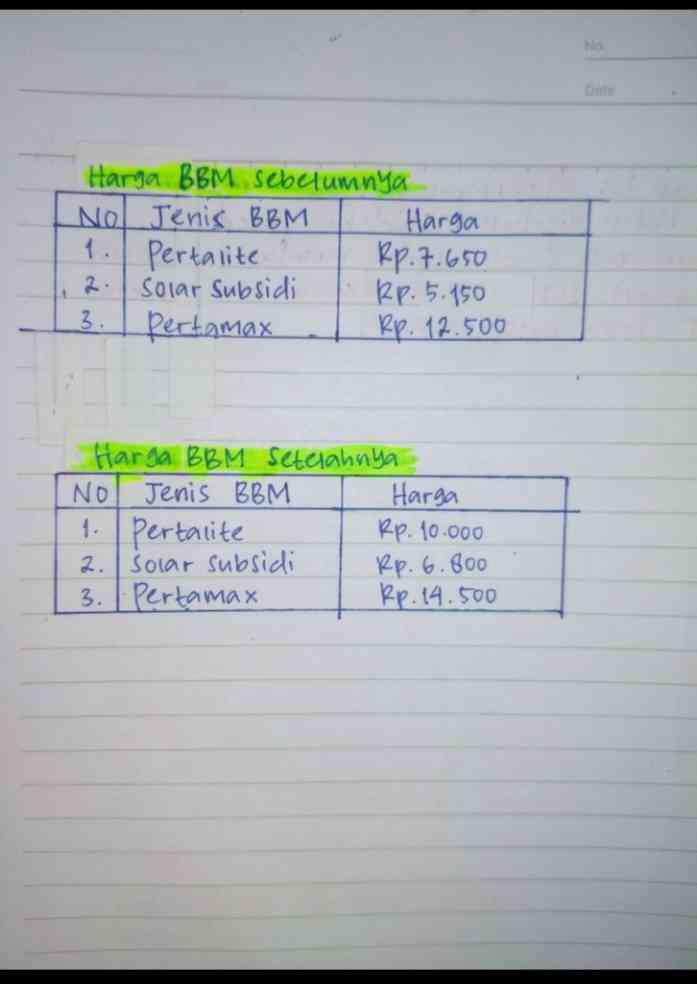 No
Date
Harga BBM sebelumnya
No Jenis BBM Harga
1. Pertalite Rp.7.650
2. Solar Subsidi Rp. 5.150
3. Pertamax Rp. 12.500
Harga BBM Setelahnya
No Jenis BBM Harga
1. Pertalite Rp. 10.000
2. Solar Subsidi Rp. 6.800
3. Pertamax Rp.14.500